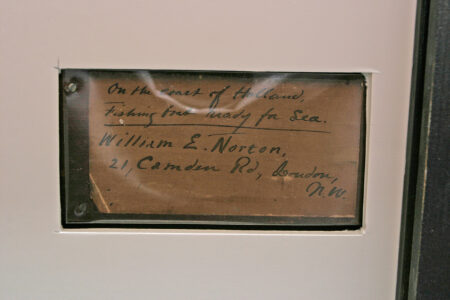 On the coast of Holland,
Fishing Boat ready for Sea.
William E. Norton,
21, Camden Rd, London,
N.W.